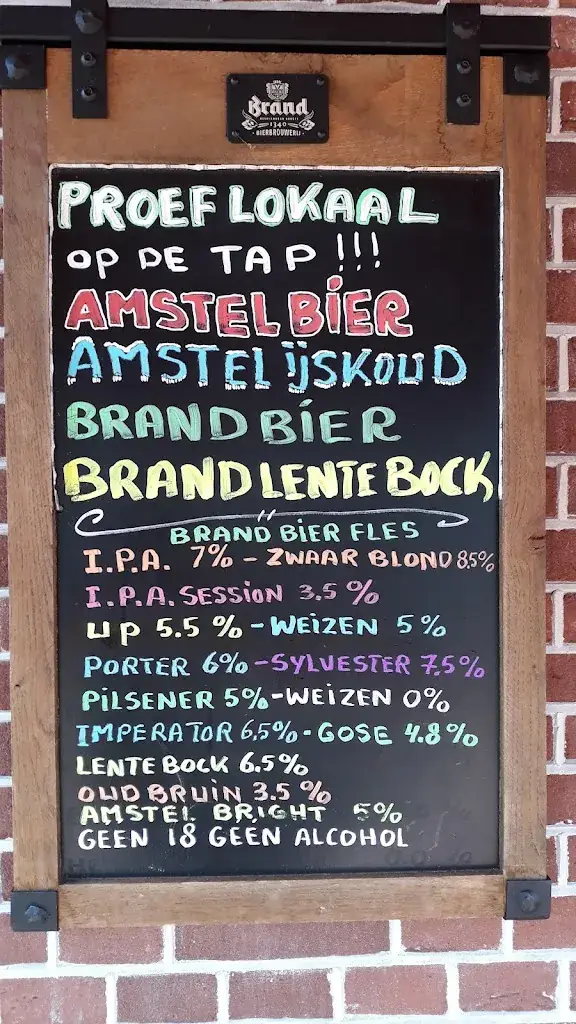 Brand
1340
BIERBROUWERIJ
PROEFLOKAAL
OP DE TAP !!!
AMSTEL BIER
AMSTEL IJSKOUD
BRAND BIER
BRAND LENTE BOCK
BRAND BIER FLES
I.P.A. 7% - ZWAAR BLOND 8.5%
I.P.A. SESSION 3.5 %
UP 5.5 % - WEIZEN 5 %
PORTER 6% - SYLVESTER 7.5%
PILSENER 5% - WEIZEN 0%
IMPERATOR 6,5% - GOSE 4.8%
LENTE BOCK 6.5%
OUD BRUIN 3.5 %
AMSTEL BRIGHT 5%
GEEN 18 GEEN ALCOHOL